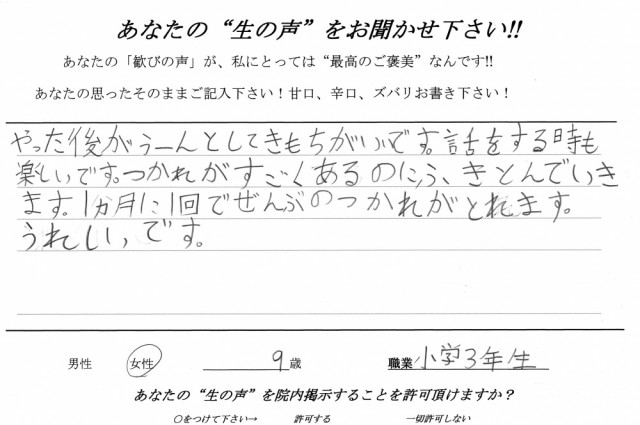 あなたの“生の声”をお聞かせ下さい!!
あなたの「歓びの声」が、私にとっては“最高のご褒美”なんです!!
あなたの思ったそのままご記入下さい！甘口、辛口、ズバリお書き下さい！
やった後がうーんとしてきもちがいいです。話をする時も
楽しいです。つかれがすごくあるのにふきとんでいき
ます。1ヵ月に1回でぜんぶのつかれがとれます。
うれしいです。
男性 女性 9歳 職業 小学3年生
あなたの“生の声”を院内掲示することを許可頂けますか？
○をつけて下さい→ 許可する 一切許可しない